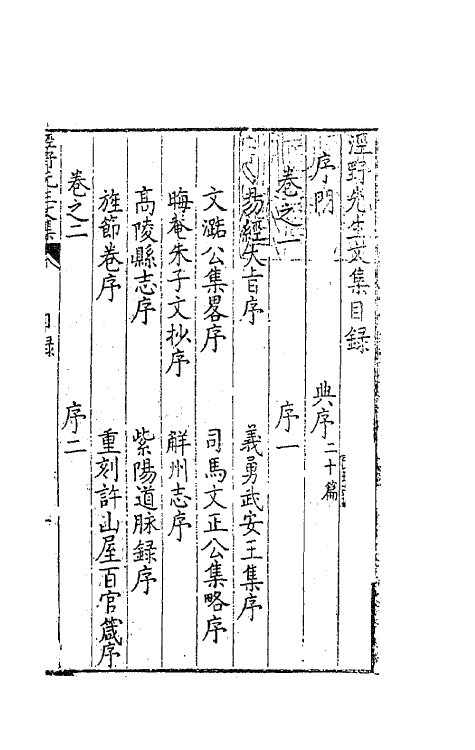 涇野先生文集目録
序門　典序二十篇
卷之一　序一
易經大旨序　義勇武安王集序
文潞公集畧序　司馬文正公集略序
晦菴朱子文抄序　觧州志序
高陵縣志序　紫陽道脉録序
旌節卷序　重刻許山屋百官箴序
卷之二　序二